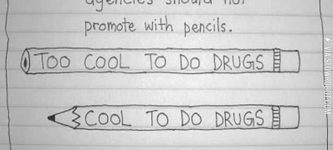 agencies should not
promote with pencils.
TOO COOL TO DO DRUGS
COOL TO DO DRUGS